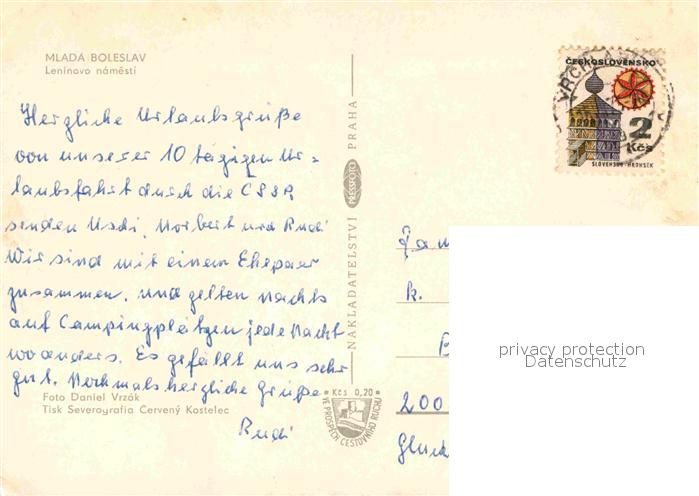 MLADÁ BOLESLAV
Leninovo náměstí
Herzliche Urlaubsgrüße
von unserer 10 tägigen Ur=
laubsfahrt durch die CSSR
senden Uschi, Norbert und Rudi
Wir sind mit einem Ehepaar
zusammen. und zelten nachts
auf Campingplätzen jede Nacht
wo anders. Es gefällt uns sehr
gut. Nochmals herzliche Grüße
Rudi
Foto Daniel Vrzák
Tisk Severografia Červený Kostelec
NAKLADATELSTVÍ PRESSFOTO PRAHA
Kčs 0,20
VE PROSPĚCH CESTOVNÍHO RUCHU
ČESKOSLOVENSKO
2
Kčs
SLOVENSKO-HRONSEK
Fam
k.
B
200
Glück
privacy protection
Datenschutz